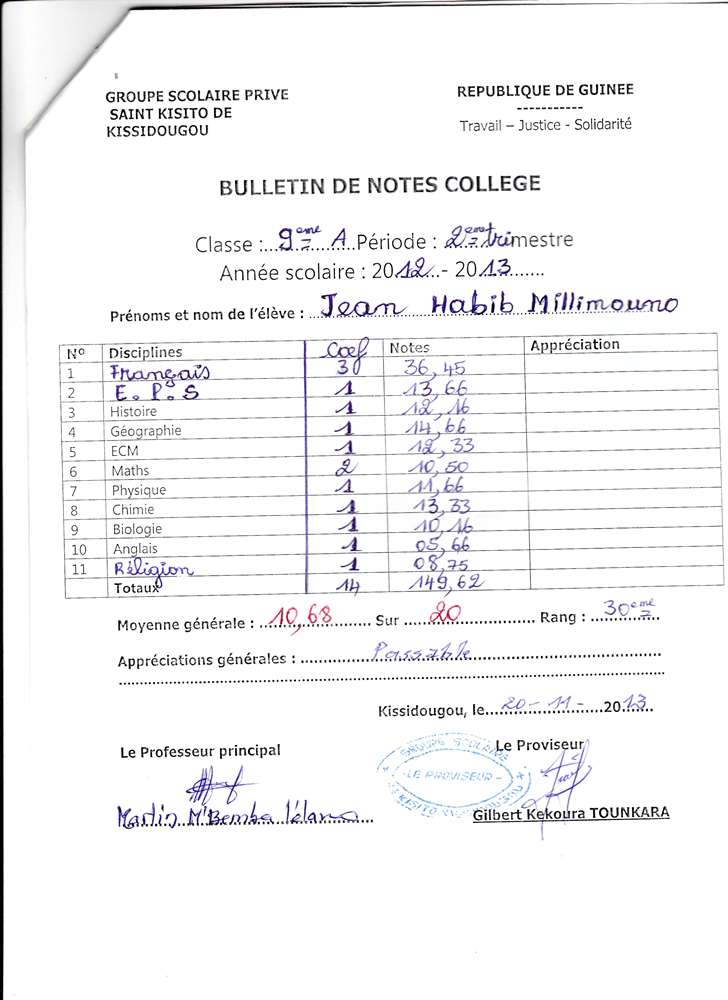 GROUPE SCOLAIRE PRIVE
SAINT KISITO DE
KISSIDOUGOU
REPUBLIQUE DE GUINEE
-----------
Travail – Justice - Solidarité
BULLETIN DE NOTES COLLEGE
Classe :..9ème A.Période : 2ème trimestre
Année scolaire : 2012..- 2013.......
Prénoms et nom de l'élève : Jean Habib Millimouno
N° Disciplines Coef Notes Appréciation
1 Français 30 36,45
2 E.P.S 1 13,66
3 Histoire 1 12,16
4 Géographie 1 14,66
5 ECM 1 12,33
6 Maths 2 10,50
7 Physique 1 11,66
8 Chimie 1 13,33
9 Biologie 1 10,16
10 Anglais 1 05,66
11 Réligion 1 08,75
Totaux 14 149,62
Moyenne générale : 10,68 Sur 20 Rang : 30ème
Appréciations générales : Passable
Kissidougou, le 20-11-2013
Le Professeur principal
Le Proviseur
GROUPE SCOLAIRE
- LE PROVISEUR -
Martin M'Bemba
Gilbert Kekoura TOUNKARA